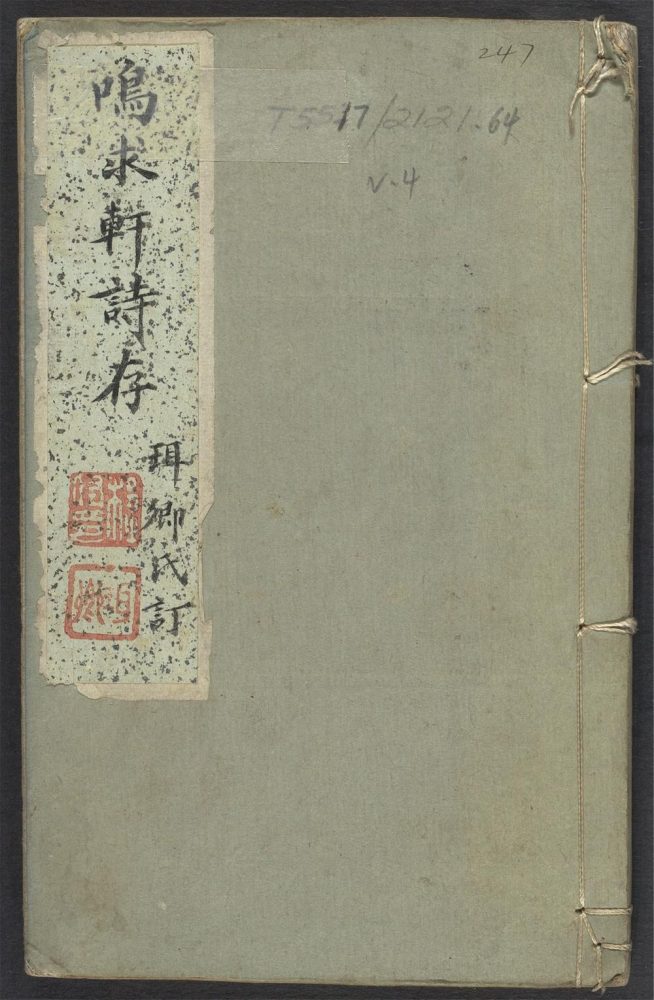 鳴求軒詩存
珥卿氏訂
247
T5517/2121.64
v.4